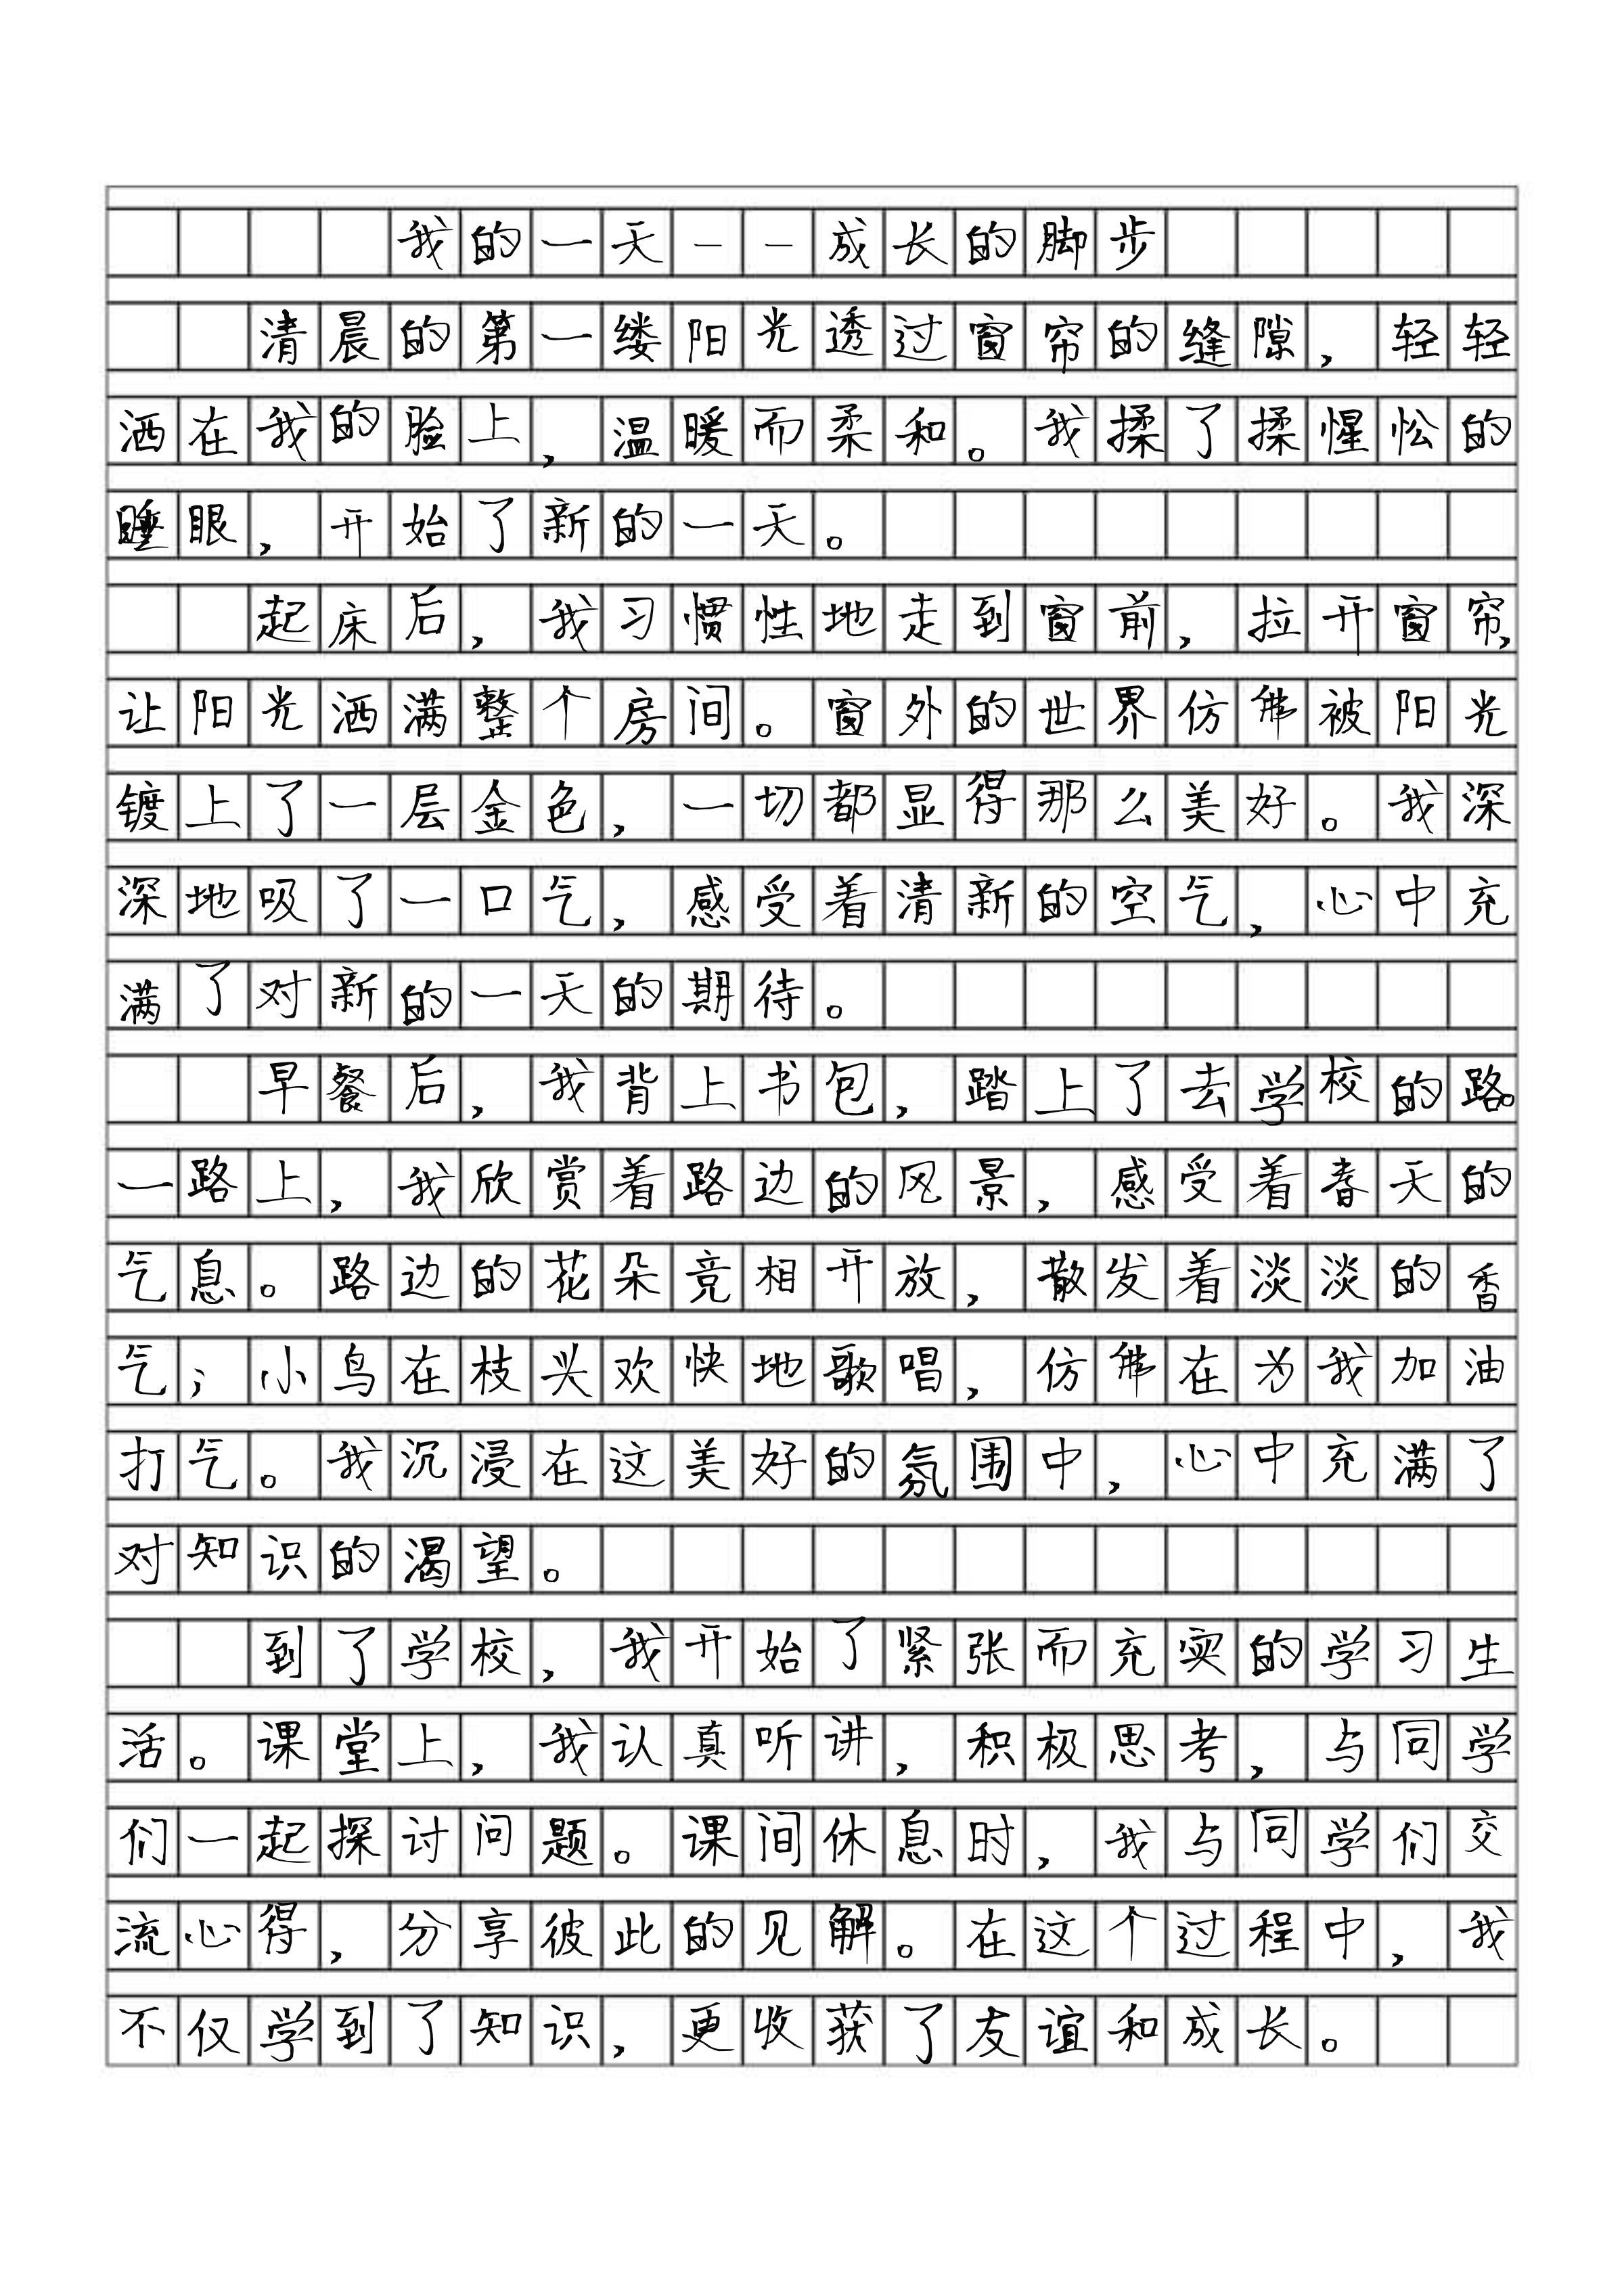 我的一天--成长的脚步
清晨的第一缕阳光透过窗帘的缝隙，轻轻
洒在我的脸上，温暖而柔和。我揉了揉惺忪的
睡眼，开始了新的一天。
起床后，我习惯性地走到窗前，拉开窗帘，
让阳光洒满整个房间。窗外的世界仿佛被阳光
镀上了一层金色，一切都显得那么美好。我深
深地吸了一口气，感受着清新的空气，心中充
满了对新的一天的期待。
早餐后，我背上书包，踏上了去学校的路。
一路上，我欣赏着路边的风景，感受着春天的
气息。路边的花朵竞相开放，散发着淡淡的香
气；小鸟在枝头欢快地歌唱，仿佛在为我加油
打气。我沉浸在这美好的氛围中，心中充满了
对知识的渴望。
到了学校，我开始了紧张而充实的学习生
活。课堂上，我认真听讲，积极思考，与同学
们一起探讨问题。课间休息时，我与同学们交
流心得，分享彼此的见解。在这个过程中，我
不仅学到了知识，更收获了友谊和成长。